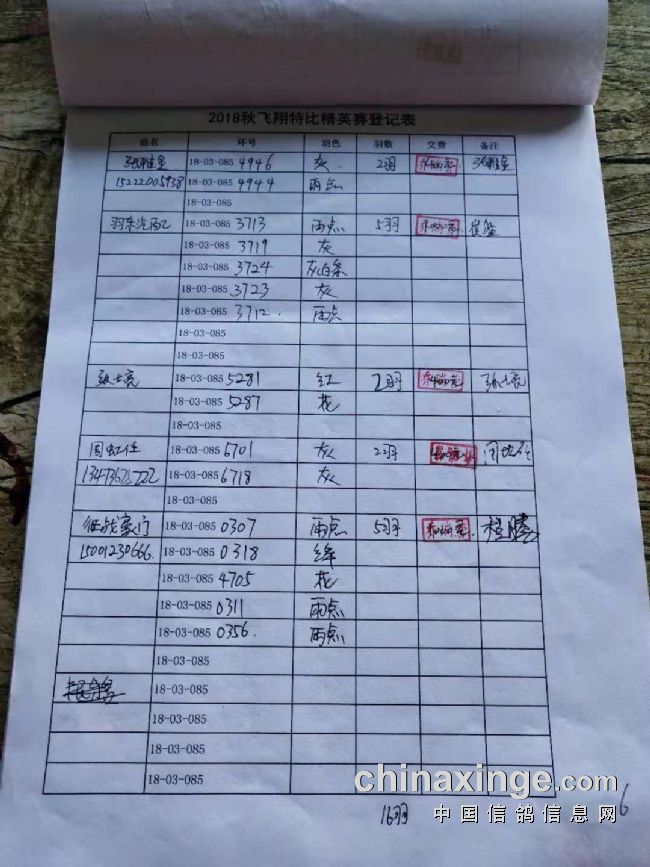 2018秋飞翔特比精英赛登记表
姓名 环号 羽色 羽数 交费 备注
18-03-085 4946 灰 2羽
15222005938 18-03-085 4944 雨点
18-03-085
18-03-085 3713 雨点 5羽
18-03-085 3719 灰
18-03-085 3724 灰白条
18-03-085 3723 灰
18-03-085 3712 雨点
18-03-085
18-03-085
张士亮 18-03-085 5281 红 2羽 张士亮
18-03-085 5287 花
18-03-085
18-03-085 6701 灰 2羽
18-03-085 6718 灰
18-03-085
征战豪门 18-03-085 0307 雨点 5羽
15001230666. 18-03-085 0318 绛
18-03-085 4705 花
18-03-085 0311 雨点
18-03-085 0356. 雨点
18-03-085
18-03-085
18-03-085
18-03-085
18-03-085
16羽 6
chinaxinge.com
中国信鸽信息网